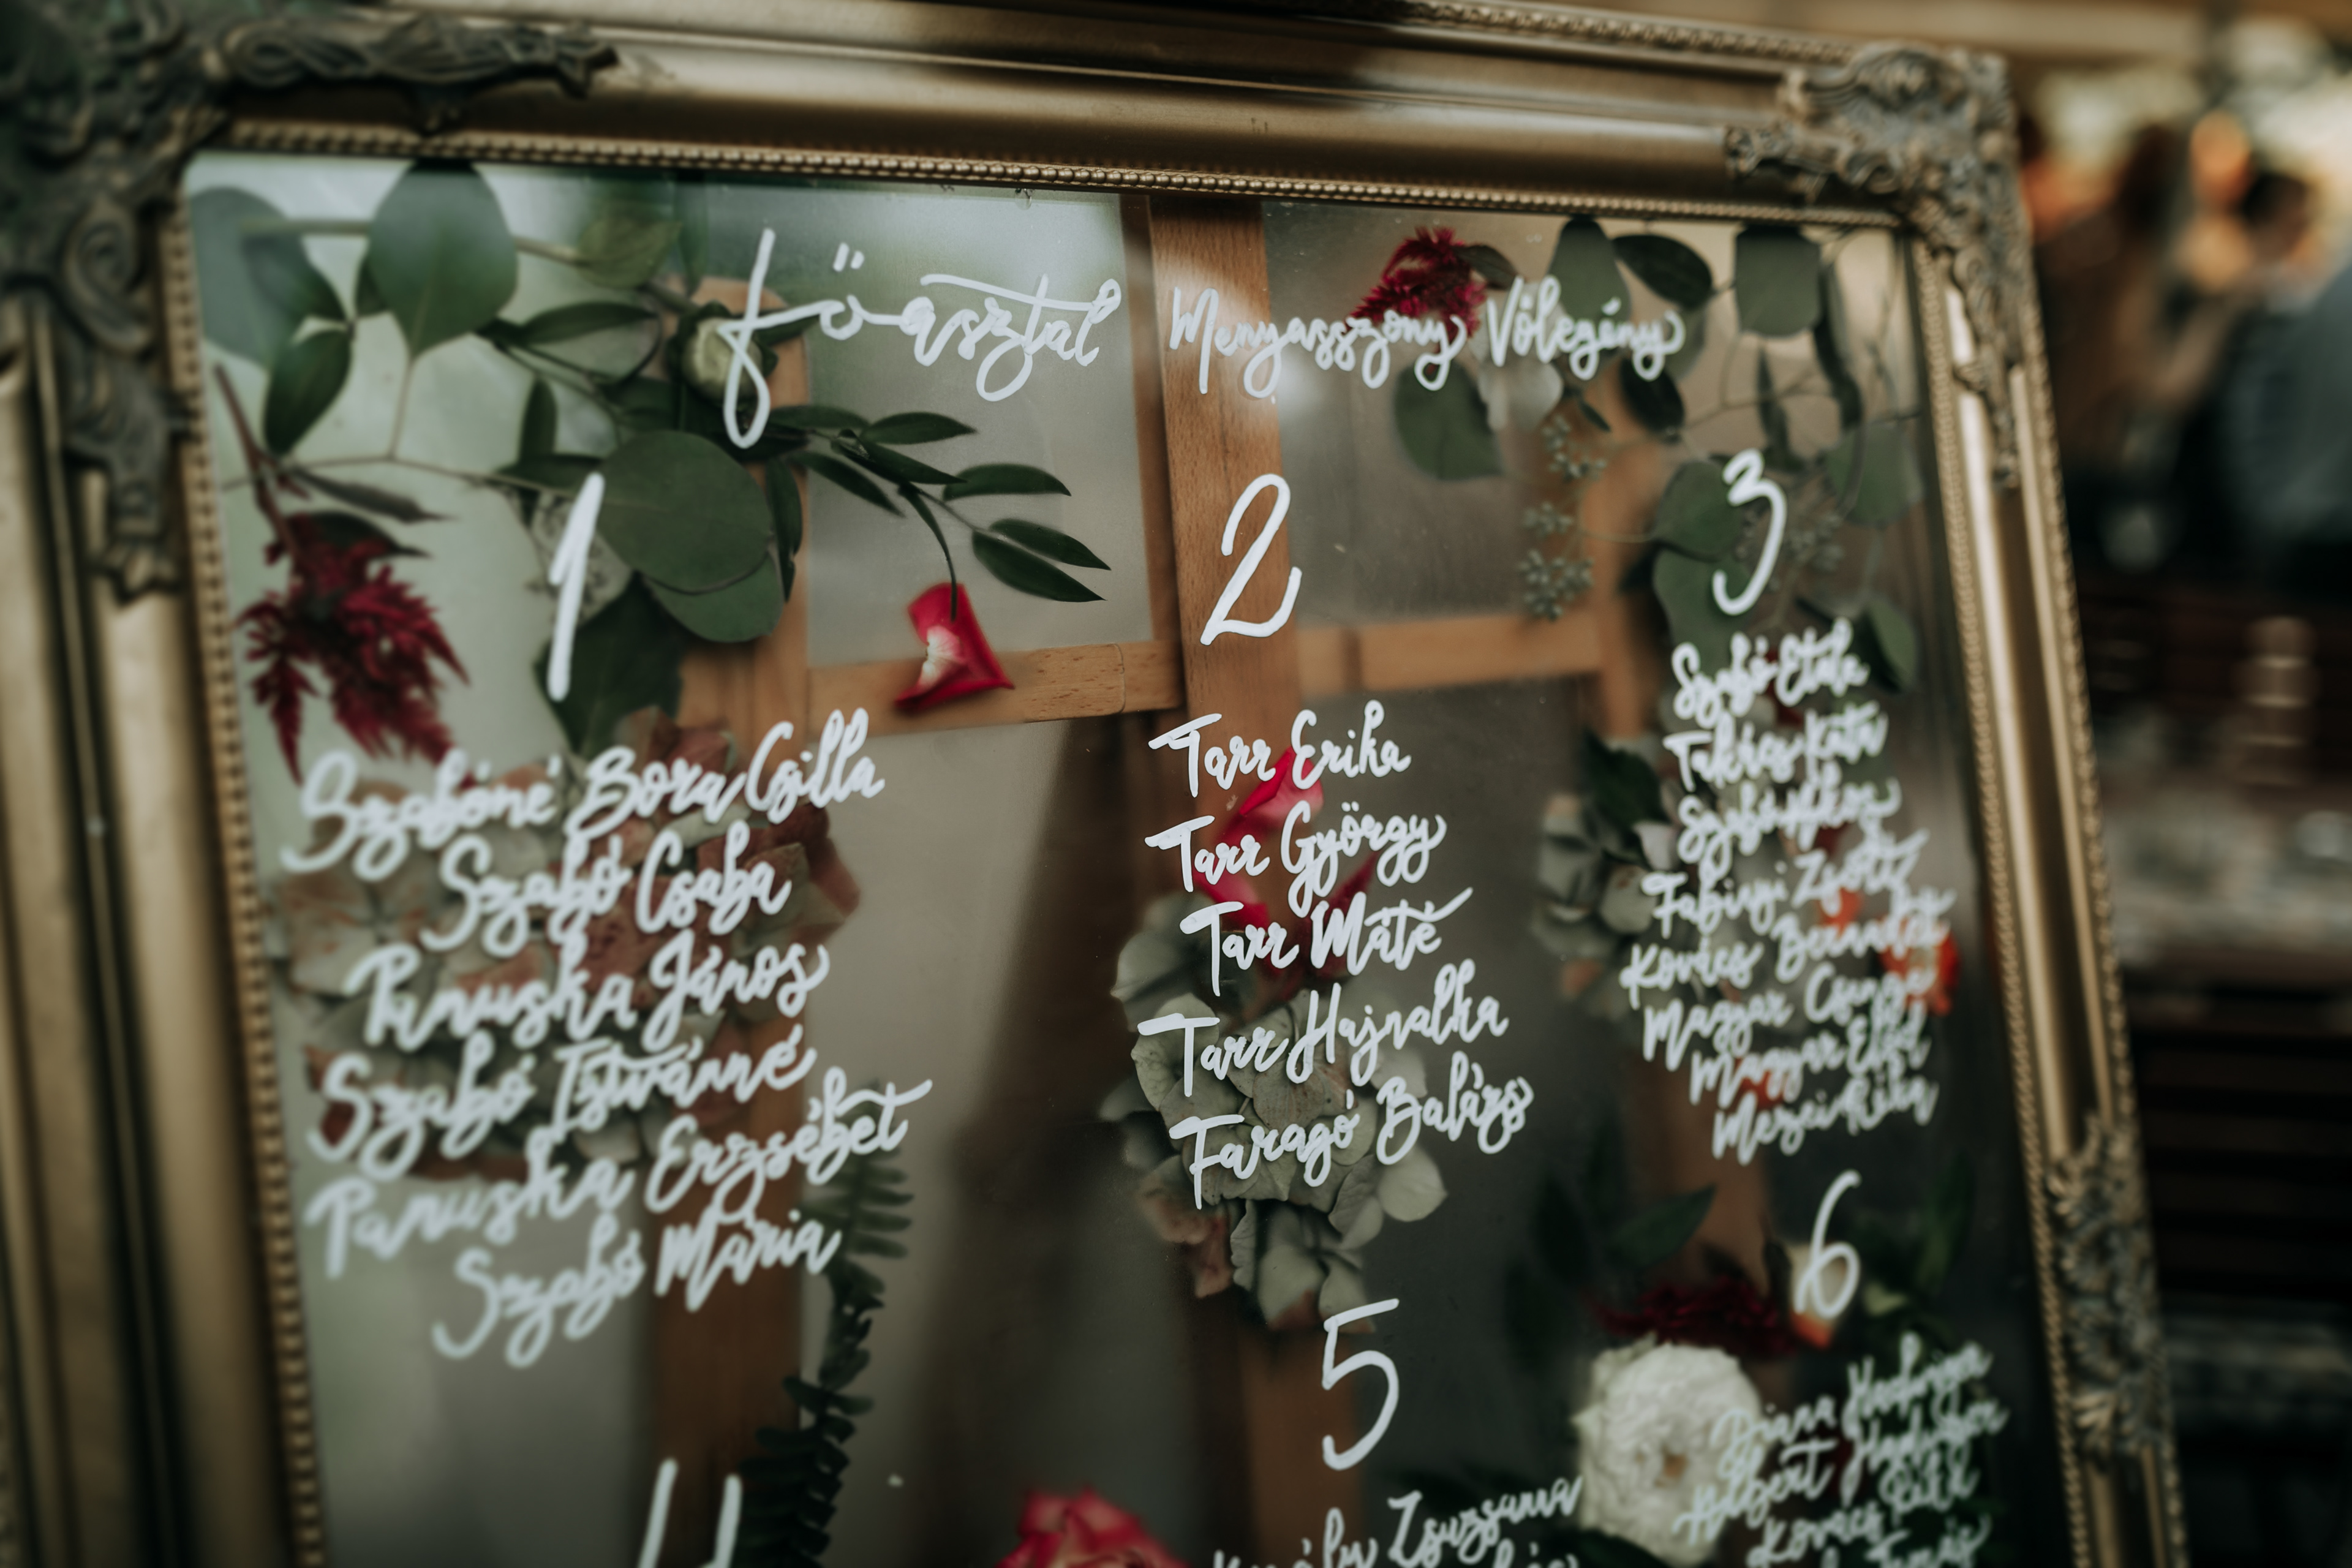 főasztal Menyasszony Vőlegény
1
Szabóné Bora Csilla
Szabó Csaba
Panuska János
Szabó Istvánné
Panuska Erzsébet
Szabó Mária
2
Tarr Erika
Tarr György
Tarr Máté
Tarr Hajnalka
Faragó Balázs
3
Szabó Etele
Takács Kata
Szabó
Fabinyi Zsolt
Kovács Bernadett
Magyar Csenge
Magyar Előd
Mezei Réka
4
5
Zsuzsanna
6
Diána
Robert
Kovács